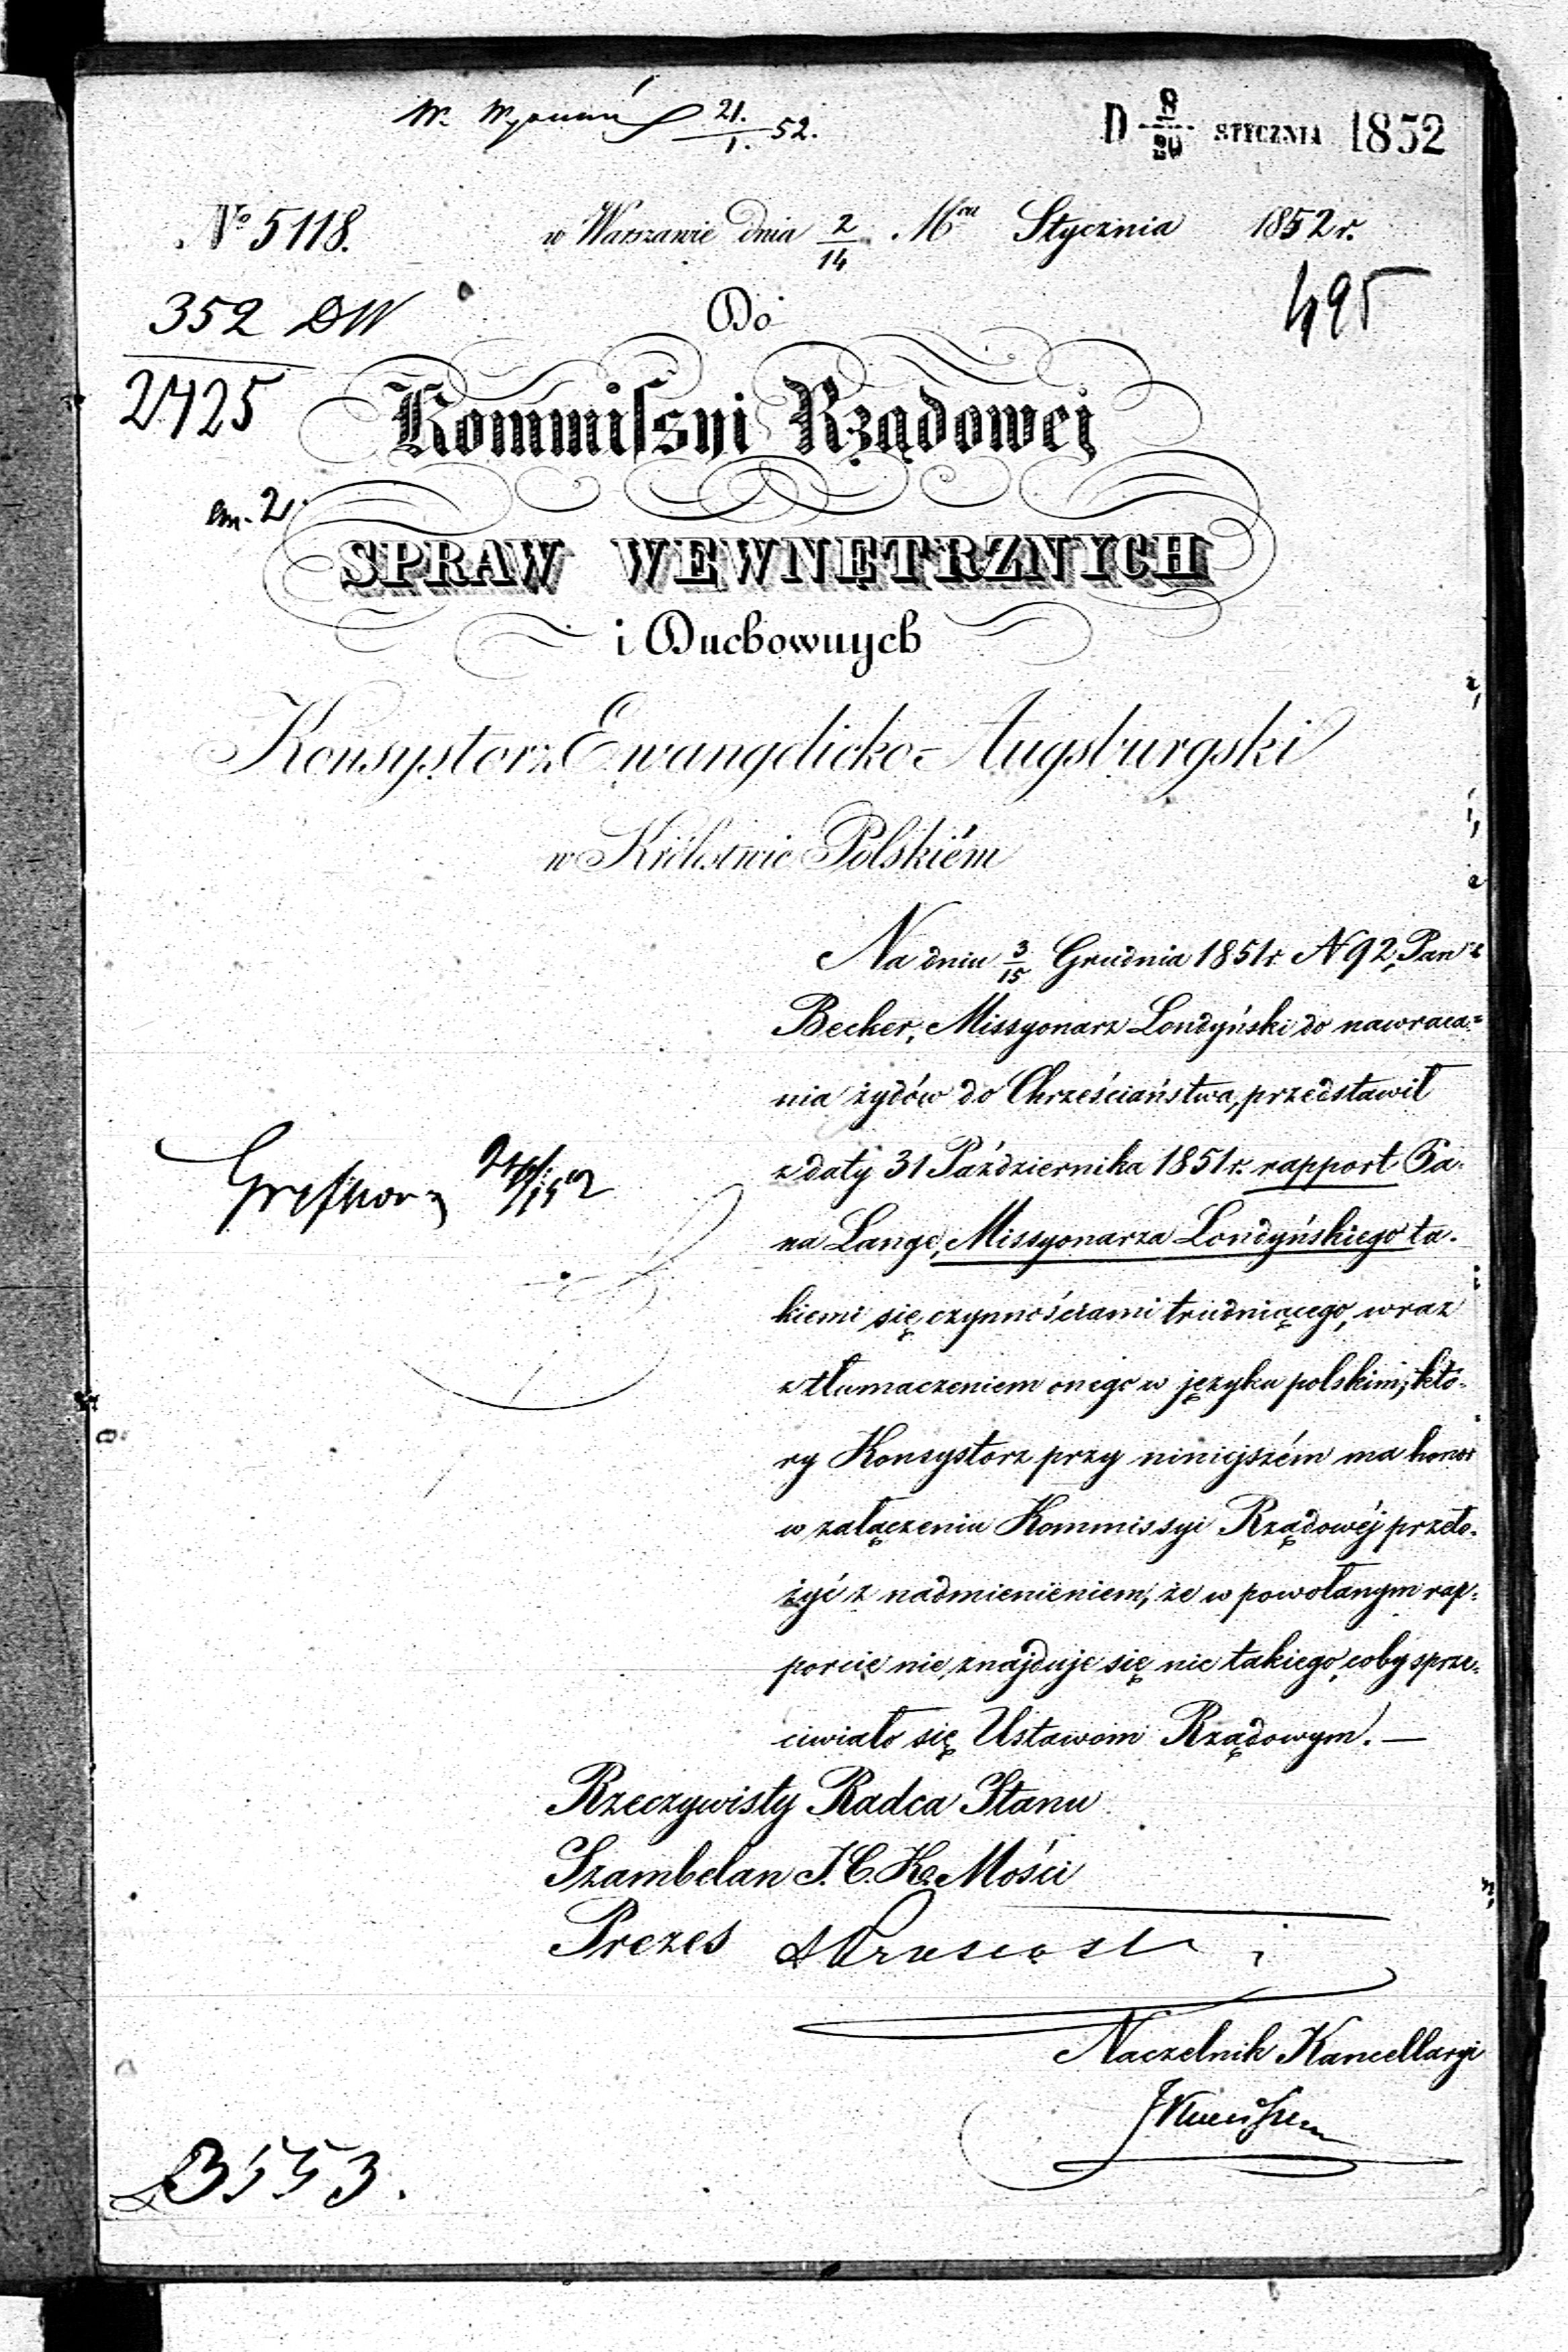 21./1. 52.
D 8/20 STYCZNIA 1852
No 5118. w Warszawie dnia 2/14 Mca Stycznia 1852 r.
352 DW
495
2425
Do
Kommiſsyi Rządowej
SPRAW WEWNĘTRZNYCH
i Duchownych
Konsystorz Ewangelicko-Augsburgski
w Królestwie Polskiém
Na dniu 3/15 Grudnia 1851 r. N 92, Pan
Becker, Missyonarz Londyński do nawraca=
nia żydów do Chrześciaństwa, przedstawił
z daty 31 Października 1851 r. rapport Pa-
na Lange, Missyonarza Londyńskiego ta-
kiemi się czynnościami trudniącego, wraz
z tłumaczeniem onego w języku polskim, któ-
ry Konsystorz przy niniejszém ma honor
w załączeniu Kommissyi Rządowéj przeło-
żyć z nadmienieniem, że w powołanym rap-
porcie nie znajduje się nic takiego, coby sprze-
ciwiało się Ustawom Rządowym. —
Rzeczywisty Radca Stanu
Szambelan J. C. K. Mości
Prezes
Naczelnik Kancellaryi
3553.